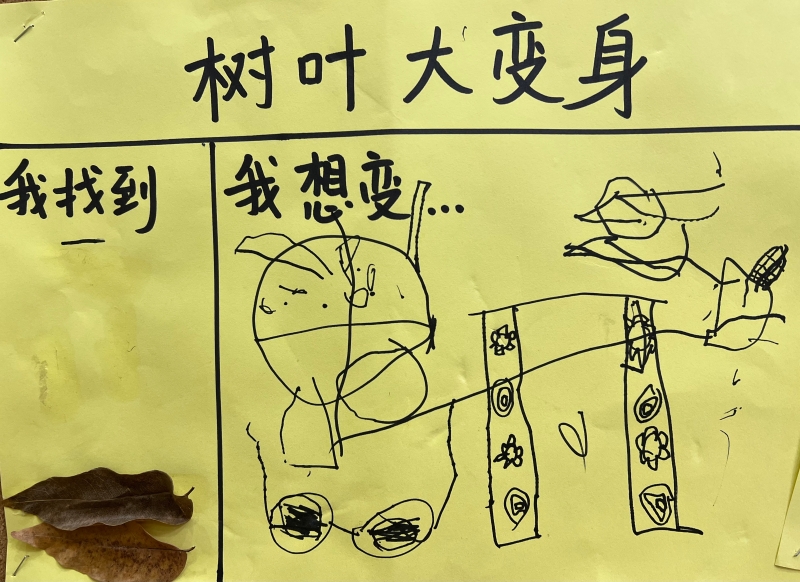 树叶大变身
我找到
我想变...